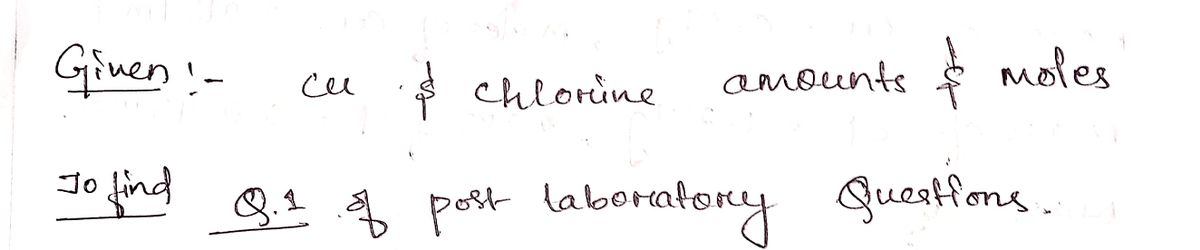 Given :- cu & chlorine amounts & moles
To find Q.1 of post laboratory Questions.